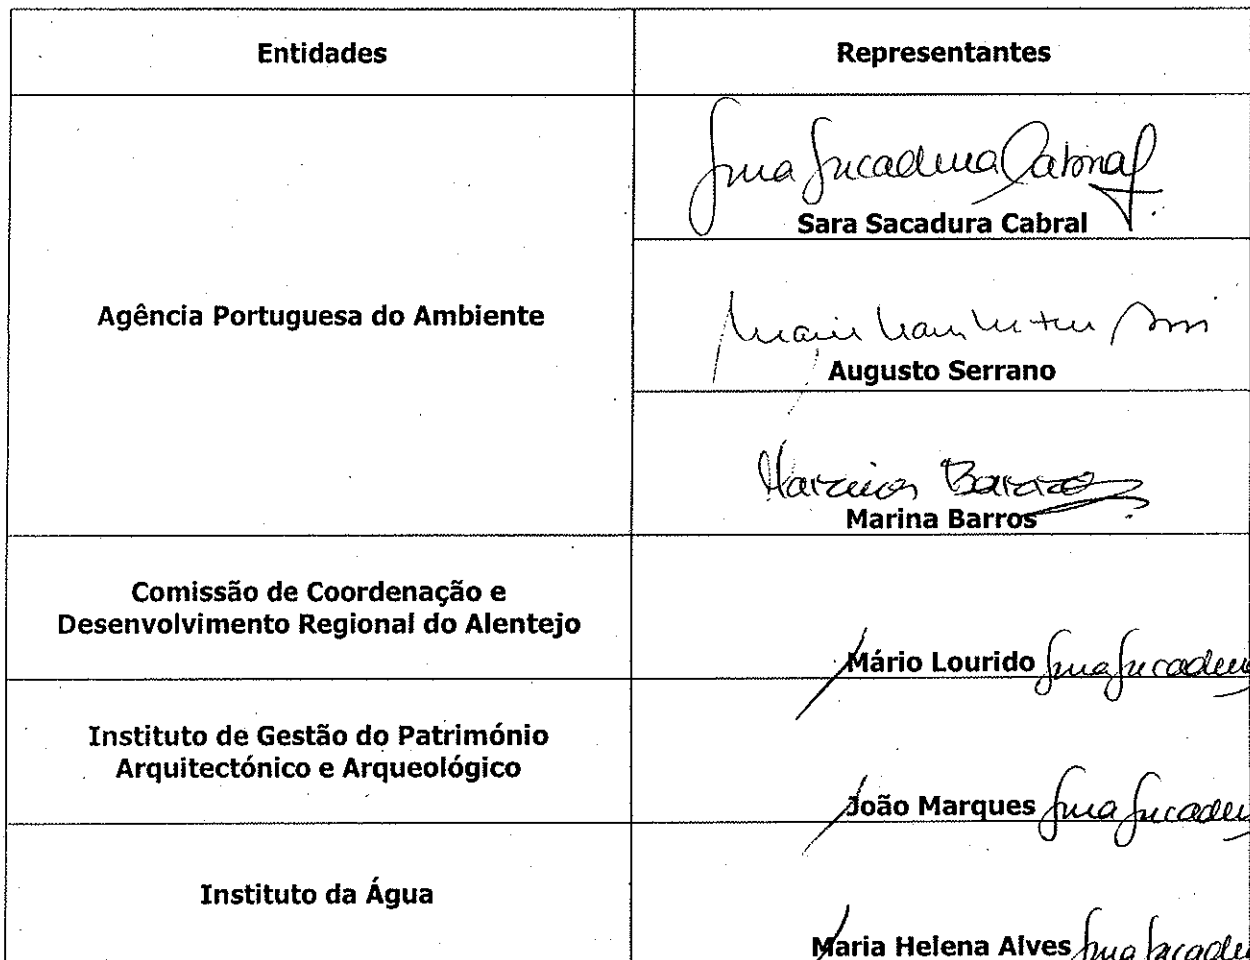 Entidades
Representantes
Sara Sacadura Cabral
Sara Sacadura Cabral
Agência Portuguesa do Ambiente
Augusto Serrano
Marina Barros
Marina Barros
Comissão de Coordenação e
Desenvolvimento Regional do Alentejo
Mário Lourido Sara Sacadura
Instituto de Gestão do Património
Arquitectónico e Arqueológico
João Marques Sara Sacadura
Instituto da Água
Maria Helena Alves Sara Sacadura